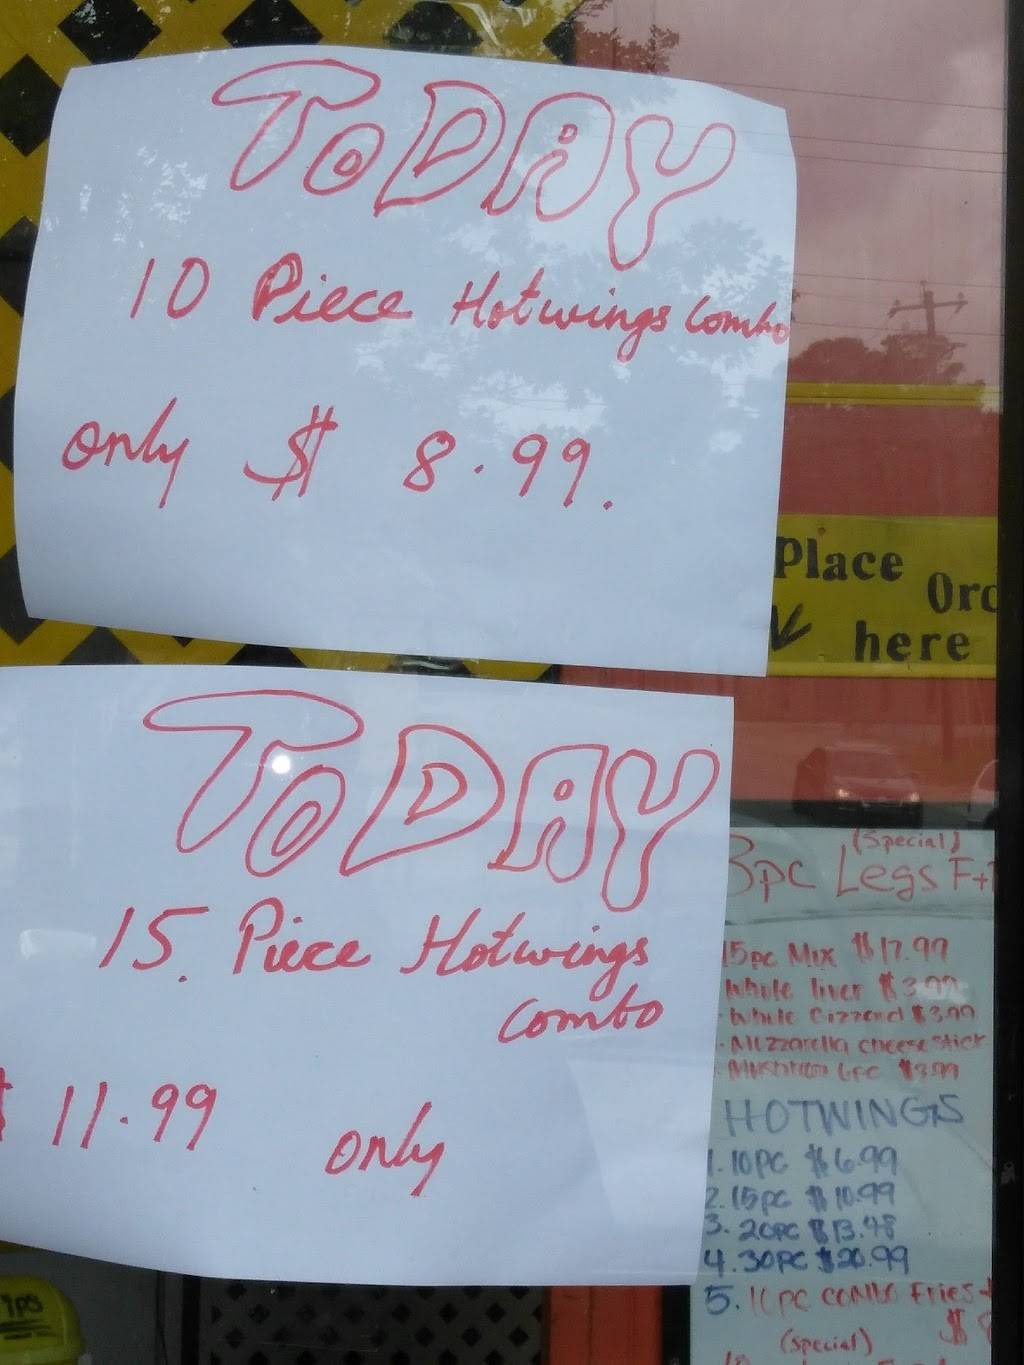 TODAY
10 Piece Hotwings Combo
only $ 8.99.
Place
Ord
here
TODAY
15. Piece Hotwings
Combo
$ 11.99 only
(Special)
3pc Legs F+
15pc Mix $17.99
Whole liver $3.99
Whole Gizzard $3.99
Mozzarella cheese stick
Mushroom 6pc $3.99
HOTWINGS
1. 10PC $6.99
2. 15PC $10.99
3. 20PC $13.48
4. 30PC $20.99
5. 10PC COMBO Fries
$
(Special)
TIPS